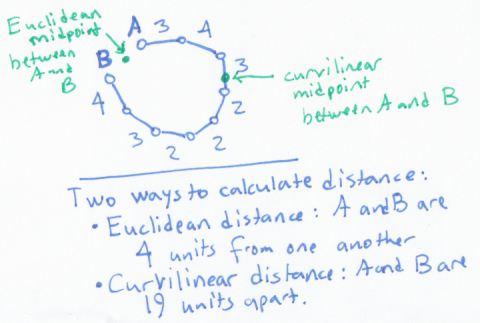 Euclidean
midpoint
between
A and
B
A
B
3
4
3
2
2
2
3
4
curvilinear
midpoint
between A and B
Two ways to calculate distance:
• Euclidean distance: A and B are
4 units from one another
• Curvilinear distance: A and B are
19 units apart.